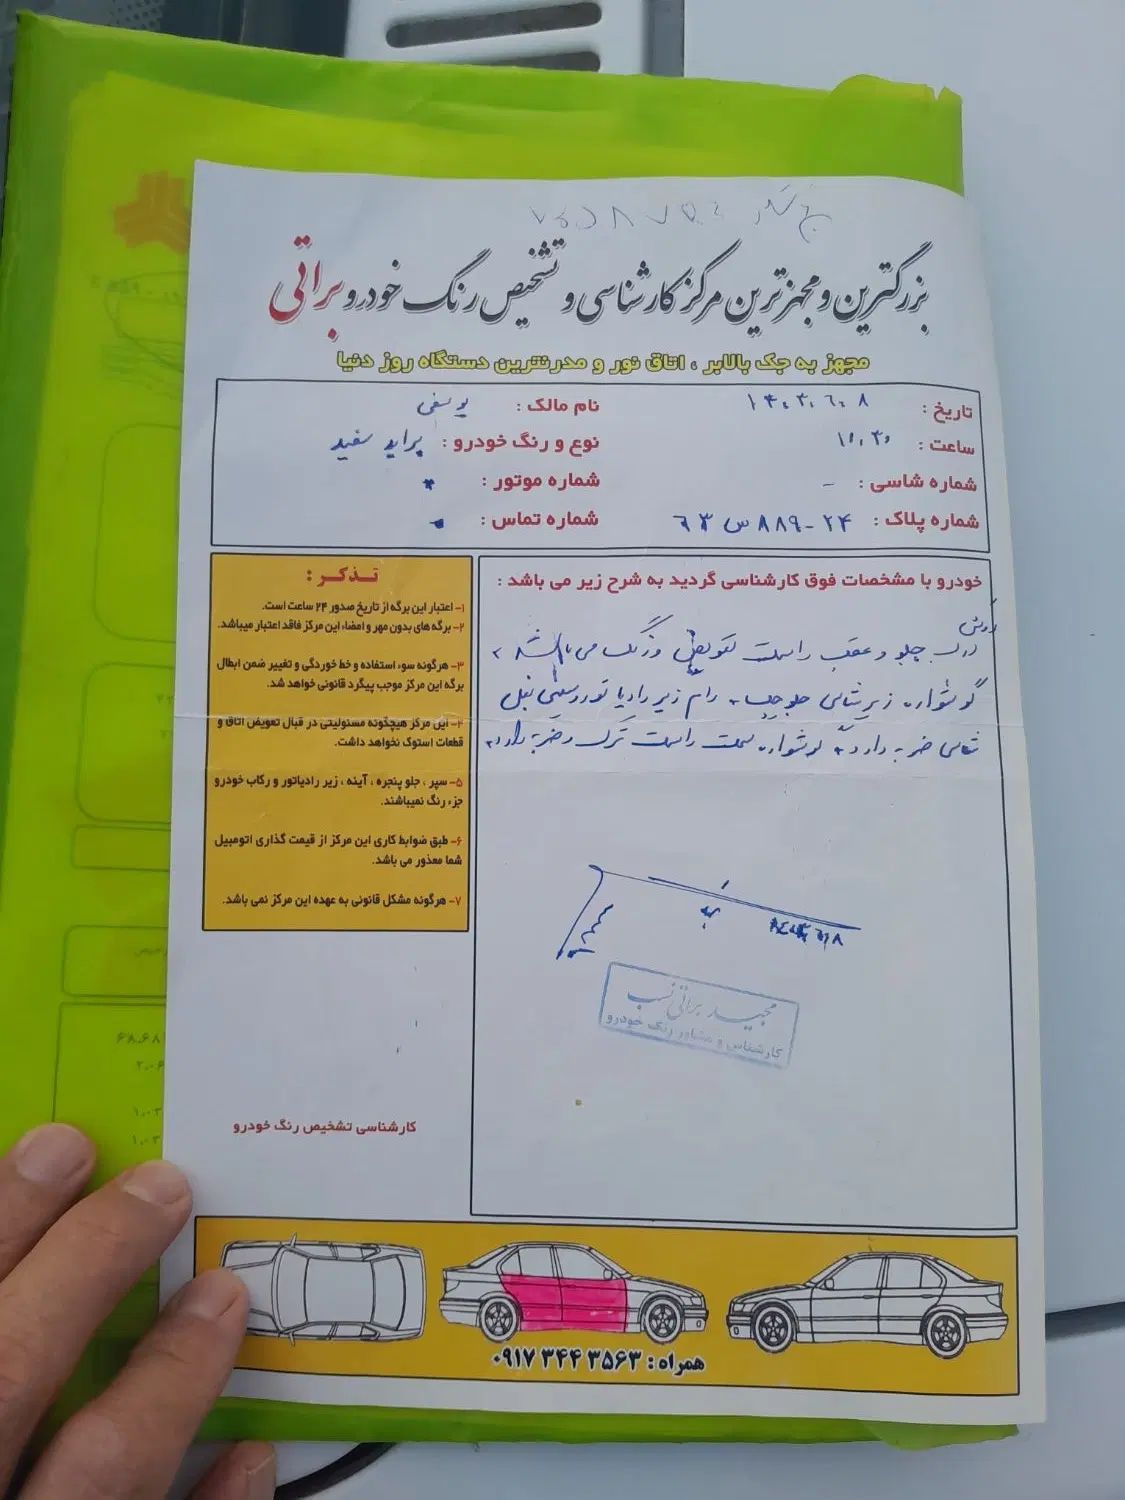 بزرگترین و مجهزترین مرکز کارشناسی و تشخیص رنگ خودرو براتی
مجهز به جک بالابر ، اتاق نور و مدرنترین دستگاه روز دنیا
تاریخ : ۱۴۰۳.۶.۸
نام مالک : یوسفی
ساعت : ۱۱.۳۰
نوع و رنگ خودرو : پراید سفید
شماره شاسی : -
شماره موتور :
شماره پلاک : ۶۳ س ۸۸۹-۲۴
شماره تماس :
خودرو با مشخصات فوق کارشناسی گردید به شرح زیر می باشد :
درب جلو و عقب راست تعویض و رنگ می باشد
گوشواره زیر شاسی جلو چپ رام زیر رادیاتور وسینی بغل
شاسی ضربه دارد گوشواره سمت راست ترک و ضربه دارد
تـذکـر :
۱- اعتبار این برگه از تاریخ صدور ۲۴ ساعت است.
۲- برگه های بدون مهر و امضاء این مرکز فاقد اعتبار میباشد.
۳- هرگونه سوء استفاده و خط خوردگی و تغییر ضمن ابطال
برگه این مرکز موجب پیگرد قانونی خواهد شد.
۴- این مرکز هیچگونه مسئولیتی در قبال تعویض اتاق و
قطعات استوک نخواهد داشت.
۵- سپر ، جلو پنجره ، آینه ، زیر رادیاتور و رکاب خودرو
جزء رنگ نمیباشند.
۶- طبق ضوابط کاری این مرکز از قیمت گذاری اتومبیل
شما معذور می باشد.
۷- هرگونه مشکل قانونی به عهده این مرکز نمی باشد.
مجید براتی نسب
کارشناس و مشاور رنگ خودرو
کارشناسی تشخیص رنگ خودرو
همراه : ۰۹۱۷ ۳۴۴ ۳۵۶۳